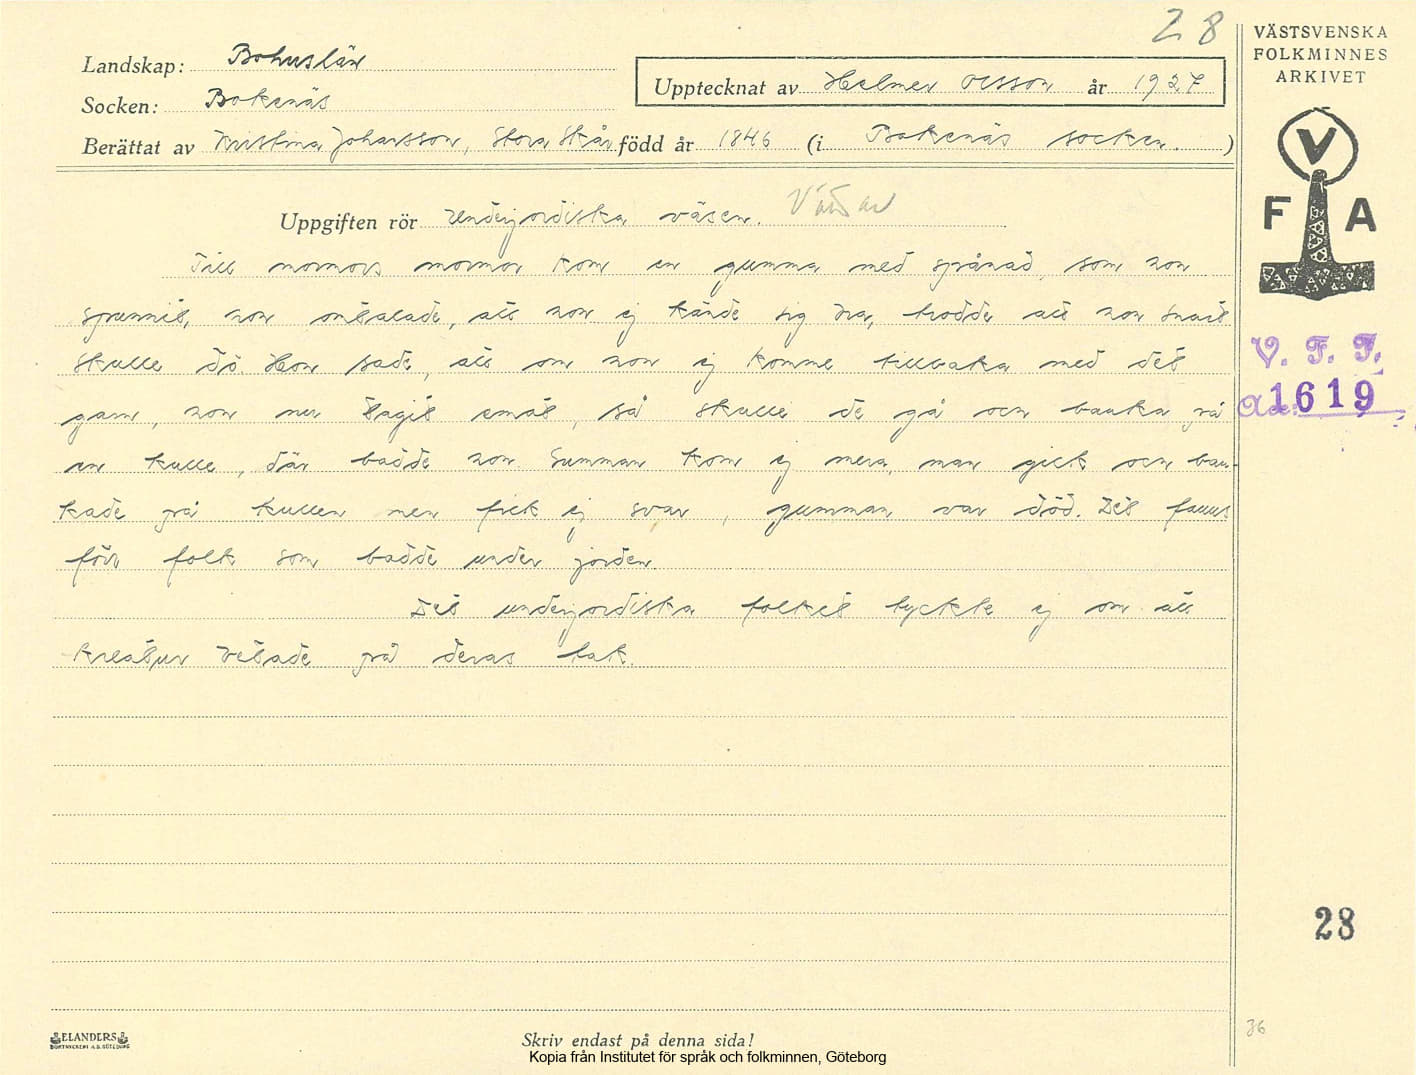 28
VÄSTSVENSKA
FOLKMINNES
ARKIVET
Landskap: Bohuslän
Upptecknat av Helmer Olsson år 1927
Socken: Bokenäs
Berättat av Kristina Johansson, Stora Skår född år 1846 (i Bokenäs socken.)
V
F A
Uppgiften rör Underjordiska väsen.
Till mormors mormor kom en gumma med spånad, som hon
spunnit, hon omtalade, att hon ej kände sig bra, trodde att hon snart
skulle dö. Hon sade, att om hon ej komme tillbaka med det
garn, hon nu tagit emot, så skulle de gå och banka på
en kulle, där bodde hon. Gumman kom ej mera, man gick och ban-
kade på kullen men fick ej svar, gumman var död. Det fanns
förr folk som bodde under jorden.
Det underjordiska folket tyckte ej om att
kreatur betade på deras tak.
V. F. F.
1619
28
36
ELANDERS
Skriv endast på denna sida!
Kopia från Institutet för språk och folkminnen, Göteborg